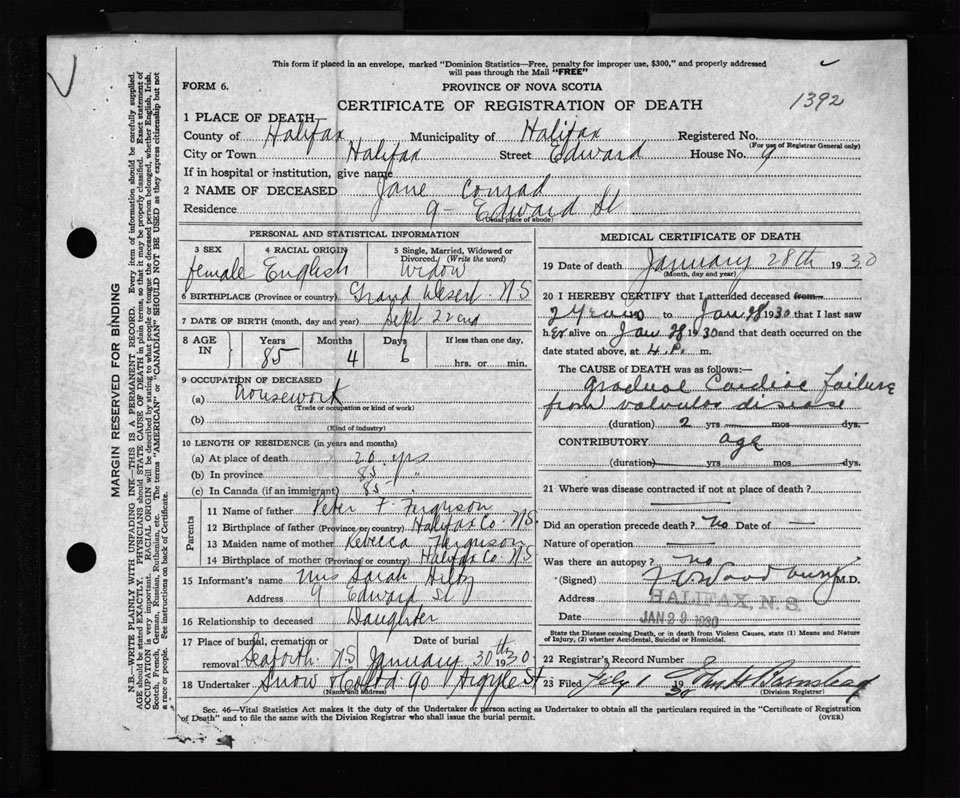 This form if placed in an envelope, marked "Dominion Statistics—Free, penalty for improper use, $300," and properly addressed
will pass through the Mail "FREE"
FORM 6.
PROVINCE OF NOVA SCOTIA
CERTIFICATE OF REGISTRATION OF DEATH
1392
1 PLACE OF DEATH
County of Halifax Municipality of Halifax Registered No.
(For use of Registrar General only)
City or Town Halifax Street Edward House No. 9
If in hospital or institution, give name
2 NAME OF DECEASED Jane Conrad
Residence 9 - Edward St
(Usual place of abode)
PERSONAL AND STATISTICAL INFORMATION
3 SEX female
4 RACIAL ORIGIN English
5 Single, Married, Widowed or Divorced, (Write the word) Widow
6 BIRTHPLACE (Province or country) Grand Desert N S
7 DATE OF BIRTH (month, day and year) Sept 22nd
8 AGE IN Years 85 Months 4 Days 6 If less than one day, hrs. or min.
9 OCCUPATION OF DECEASED
(a) housework
(Trade or occupation or kind of work)
(b)
(Kind of industry)
10 LENGTH OF RESIDENCE (in years and months)
(a) At place of death 20 yrs
(b) In province 85 "
(c) In Canada (if an immigrant) 85
Parents
11 Name of father Peter F. Ferguson
12 Birthplace of father (Province or country) Halifax Co. N S.
13 Maiden name of mother Rebecca Ferguson
14 Birthplace of mother (Province or country) Halifax Co N S
15 Informant's name Mrs Sarah
Address 9 Edward St
16 Relationship to deceased Daughter
17 Place of burial, cremation or removal Seaforth N S
Date of burial January 30th 1930
18 Undertaker Snow & Co Ltd 90 Argyle St
(Name and address)
MEDICAL CERTIFICATE OF DEATH
19 Date of death January 28th 1930
(Month, day and year)
20 I HEREBY CERTIFY that I attended deceased from
2 Years to Jan 28 1930 that I last saw
h er alive on Jan 28 1930 and that death occurred on
date stated above, at 4 P. m.
The CAUSE of DEATH was as follows:—
gradual Cardiac Failure
from valvular disease
(duration) 2 yrs mos dys.
CONTRIBUTORY age
(duration) yrs mos dys.
21 Where was disease contracted if not at place of death?
Did an operation precede death? No Date of —
Nature of operation —
Was there an autopsy? no
(Signed) Woodbury M.D.
Address HALIFAX, N.S.
Date JAN 29 1930
State the Disease causing Death, or in death from Violent Causes, state (1) Means and Nature
of Injury, (2) whether Accidental, Suicidal or Homicidal.
22 Registrar's Record Number
23 Filed Feby 1 1930 John H Barnstead
(Division Registrar)
Sec. 46—Vital Statistics Act makes it the duty of the Undertaker or person acting as Undertaker to obtain all the particulars required in the "Certificate of Registration
of Death" and to file the same with the Division Registrar who shall issue the burial permit.
(OVER)
MARGIN RESERVED FOR BINDING
N.B.—WRITE PLAINLY WITH UNFADING INK—THIS IS A PERMANENT RECORD. Every item of information should be carefully supplied.
AGE should be stated EXACTLY. PHYSICIANS should STATE CAUSE OF DEATH in plain terms, so that it may be properly classified. Exact statement of
OCCUPATION is very important. RACIAL ORIGIN will be described by stating to what people or tongue the deceased person belonged, whether English, Irish,
Scotch, French, German, Russian, Ruthenian, etc. The terms "AMERICAN" or "CANADIAN" SHOULD NOT BE USED as they express citizenship but not
a race or people. See instructions on back of Certificate.